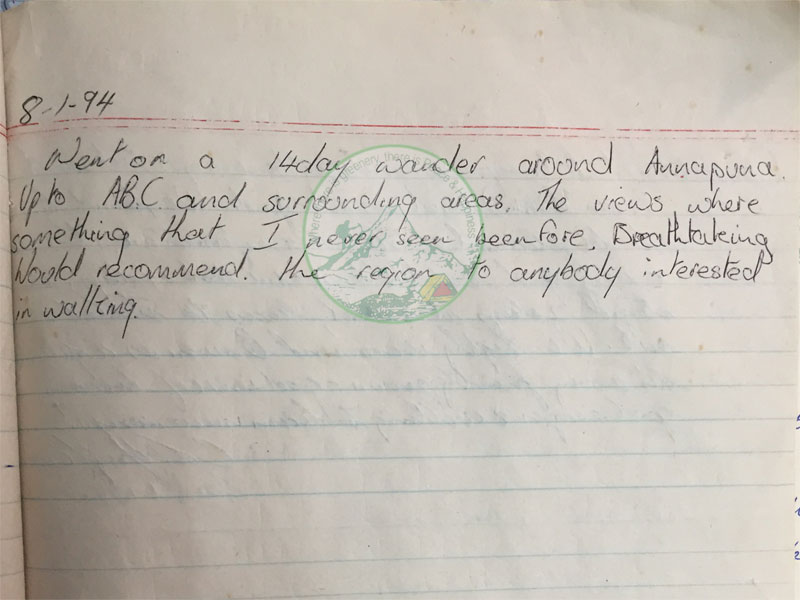 8-1-94
Went on a 14day wander around Annapuna.
Up to A.B.C. and surrounding areas. The views where
something that I never seen beenfore. Breathtaking
Would recommend. the region to anybody interested
in walking.